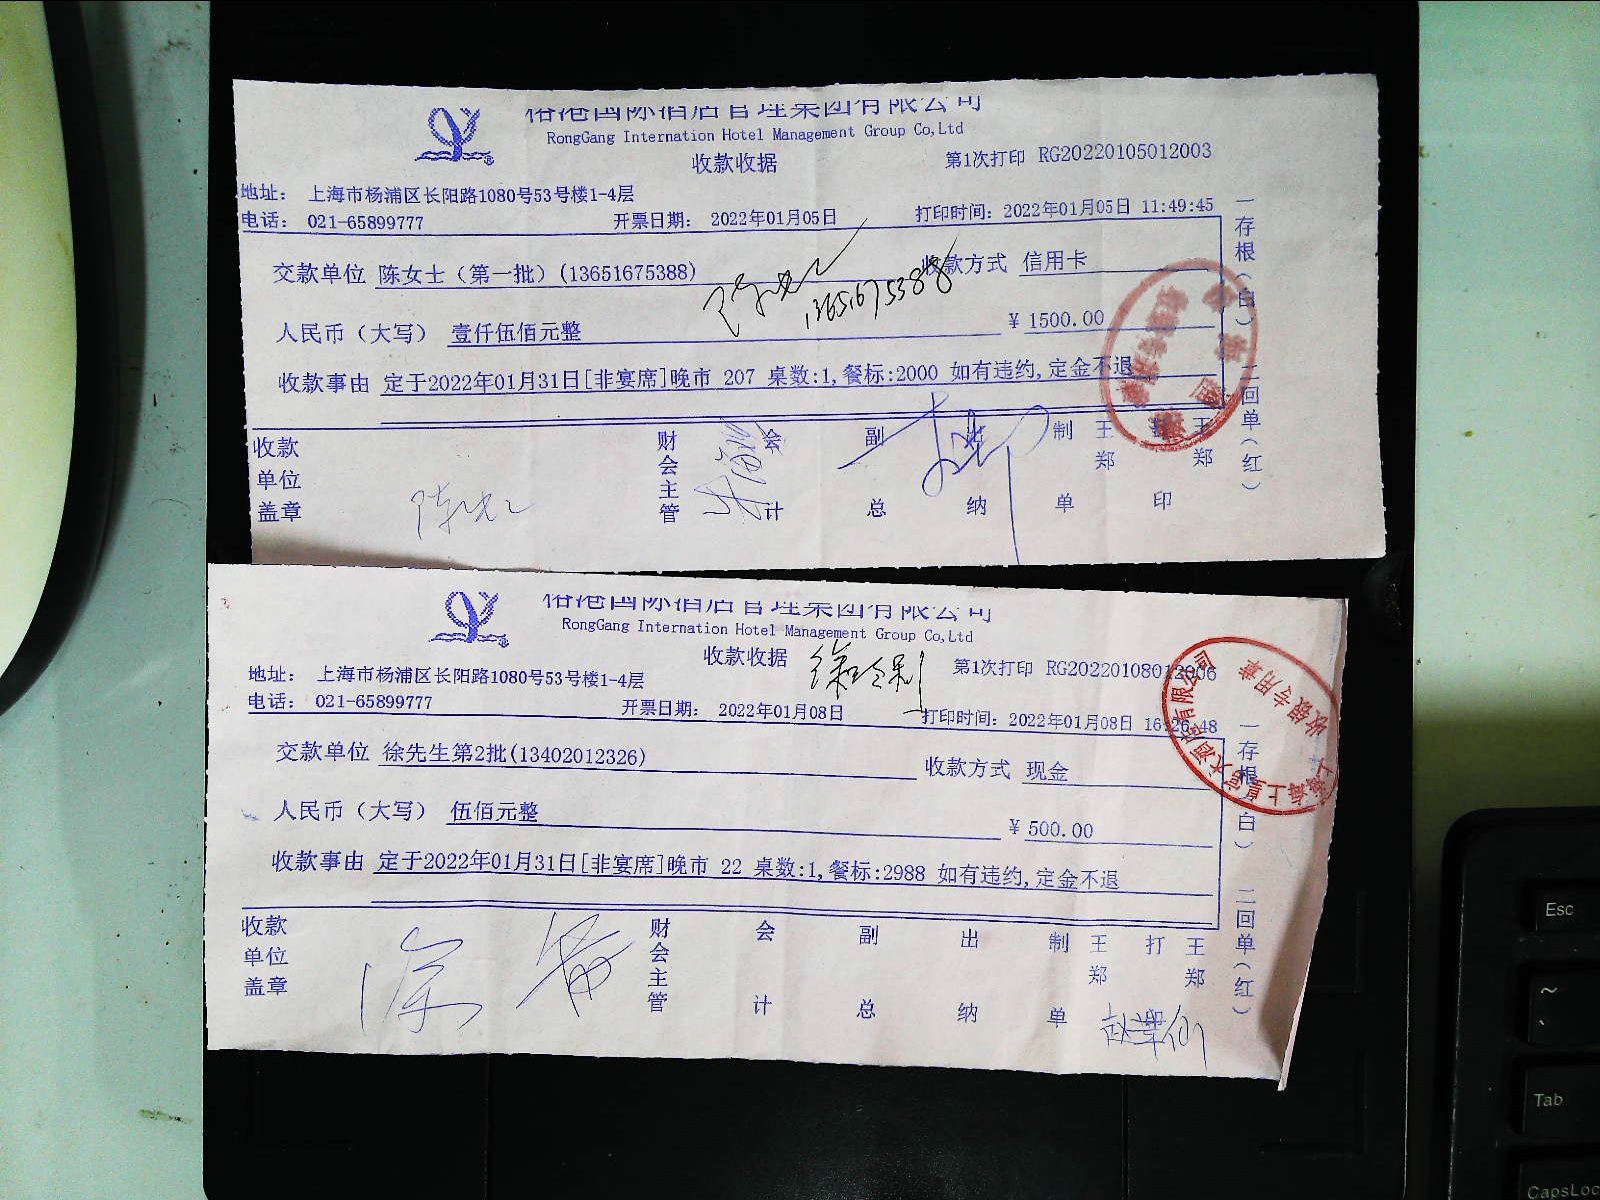 裕港国际酒店管理集团有限公司
RongGang Internation Hotel Management Group Co,Ltd
收款收据
第1次打印 RG20220105012003
地址： 上海市杨浦区长阳路1080号53号楼1-4层
电话： 021-65899777
开票日期： 2022年01月05日
打印时间：2022年01月05日 11:49:45
交款单位 陈女士（第一批）(13651675388)
收款方式 信用卡
13651675388
人民币（大写） 壹仟伍佰元整
￥ 1500.00
收款事由 定于2022年01月31日[非宴席]晚市 207 桌数:1,餐标:2000 如有违约,定金不退
收款单位盖章
财会主管
会计
副总
出纳
制单
王郑
打印
王郑
一存根（白） 二回单（红）
裕港国际酒店管理集团有限公司
RongGang Internation Hotel Management Group Co,Ltd
收款收据
第1次打印 RG20220108012006
地址： 上海市杨浦区长阳路1080号53号楼1-4层
电话： 021-65899777
开票日期： 2022年01月08日
打印时间：2022年01月08日 16:26:48
交款单位 徐先生第2批(13402012326)
收款方式 现金
人民币（大写） 伍佰元整
￥ 500.00
收款事由 定于2022年01月31日[非宴席]晚市 22 桌数:1,餐标:2988 如有违约,定金不退
收款单位盖章
财会主管
会计
副总
出纳
制单
王郑
打
王郑
一存根（白） 二回单（红）
收银专用章
Esc
~
`
Tab
CapsLoc